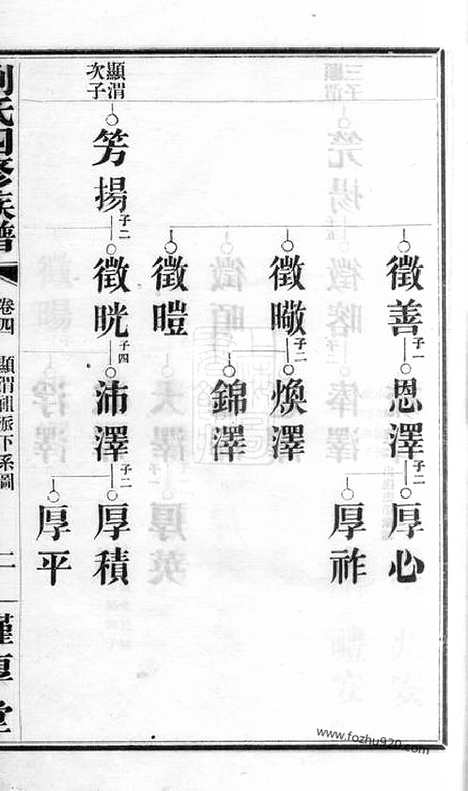 徵善 子一 恩澤 子二 厚心
厚祚
徵 子二 煥澤
錦澤
徵暟
顯渭
次子
揚 子二 徵晄 子四 沛澤 子二 厚積
厚平
氏四修族譜 卷四 顯渭 派下系圖 二 堂
www.fozhu920.com